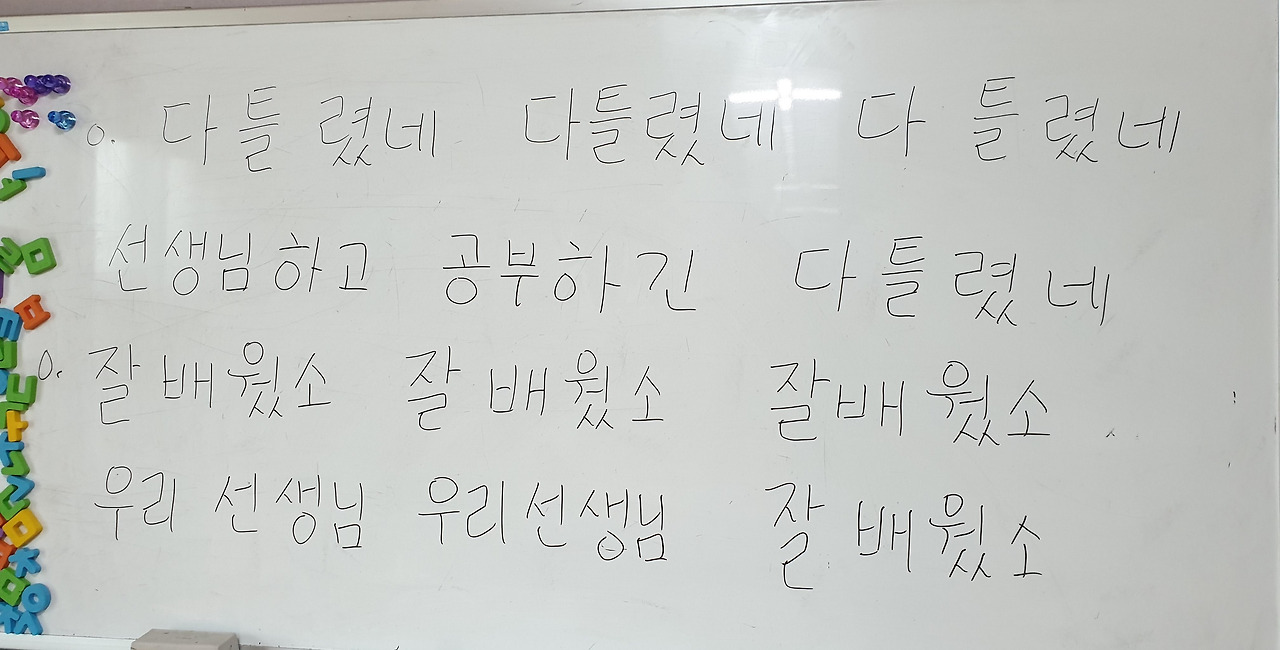 o. 다 틀 렸네 다틀렸네 다 틀 렸네
선생님하고 공부하긴 다 틀렸네
o. 잘 배웠소 잘 배웠소 잘배웠소
우리 선생님 우리선생님 잘 배웠소